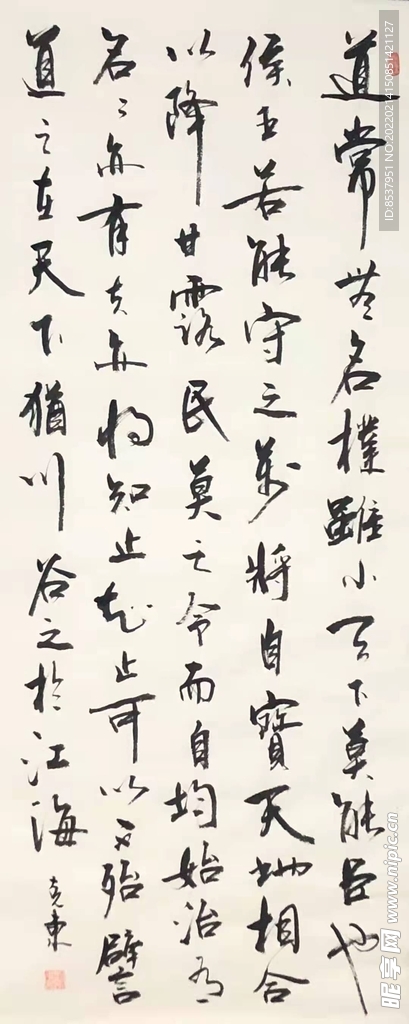 道常無名樸雖小天下莫能臣也
侯王若能守之萬將自寶天地相合
以降甘露民莫之令而自均始治有
名〻亦有夫亦將知止知止可以不殆譬
道之在天下猶川谷之於江海
克東
ID:8537951 NO:20220214150851421127
昵享网 www.nipic.cn